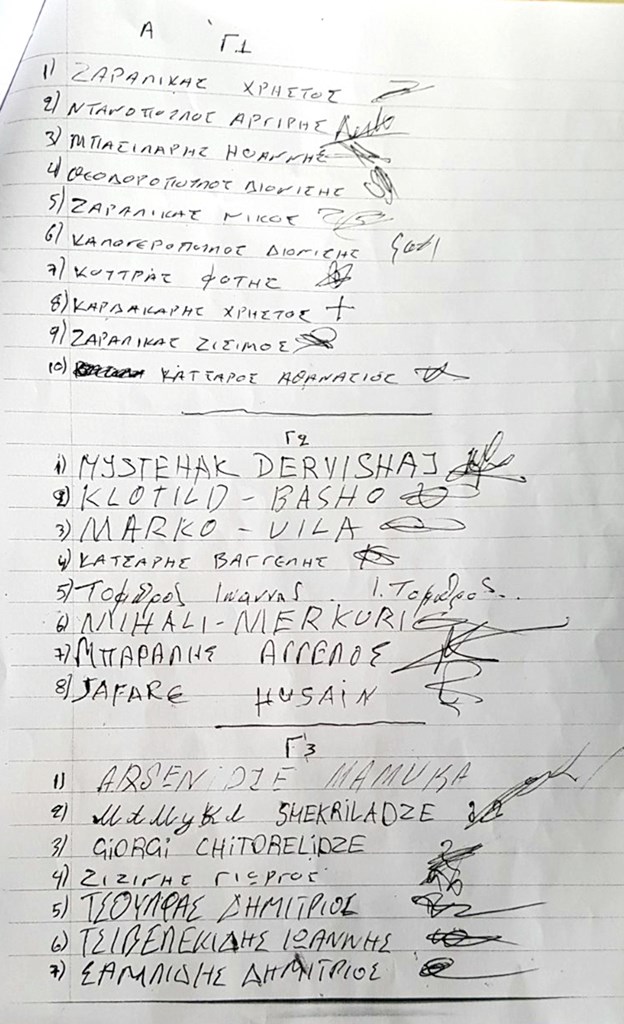 Α Γ1
1) ΖΑΡΑΛΙΚΑΣ ΧΡΗΣΤΟΣ
2) ΝΤΑΝΟΠΟΥΛΟΣ ΑΡΓΙΡΗΣ
3) ΜΠΑΣΙΛΑΡΗΣ ΗΩΑΝΝΗΣ
4) ΘΕΟΔΟΡΟΠΟΥΛΟΣ ΔΙΟΝΙΣΗΣ
5) ΖΑΡΑΛΙΚΑΣ ΝΙΚΟΣ
6) ΚΑΛΟΓΕΡΟΠΟΥΛΟΣ ΔΙΟΝΙΣΗΣ
7) ΚΟΥΤΡΑΣ ΦΟΤΗΣ
8) ΚΑΡΔΑΚΑΡΗΣ ΧΡΗΣΤΟΣ
9) ΖΑΡΑΛΙΚΑΣ ΖΙΣΙΜΟΣ
10) ΚΑΤΣΑΡΟΣ ΑΘΑΝΑΣΙΟΣ
Γ2
1) MYSTEHAK DERVISHAJ
2) KLOTILD - BASHO
3) MARKO - VILA
4) ΚΑΤΣΑΡΗΣ ΒΑΓΓΕΛΗΣ
5) Ιωαννης Ι.
6) MIHALI - MERKURI
7) ΜΠΑΡΑΛΗΣ ΑΓΓΕΛΟΣ
8) JAFARE HUSAIN
Γ3
1) ARSENIDZE MAMUKA
2) SHEKRILADZE
3) GiORGi CHITORELiDZE
4) ΖΙΖΙΝΗΣ ΓΙΩΡΓΟΣ
5) ΤΣΟΥΛΦΑΣ ΔΗΜΙΤΡΙΟΣ
6) ΤΣΙΒΕΛΕΚΙΔΗΣ ΙΩΑΝΝΗΣ
7) ΣΑΜΛΙΔΗΣ ΔΗΜΗΤΡΙΟΣ